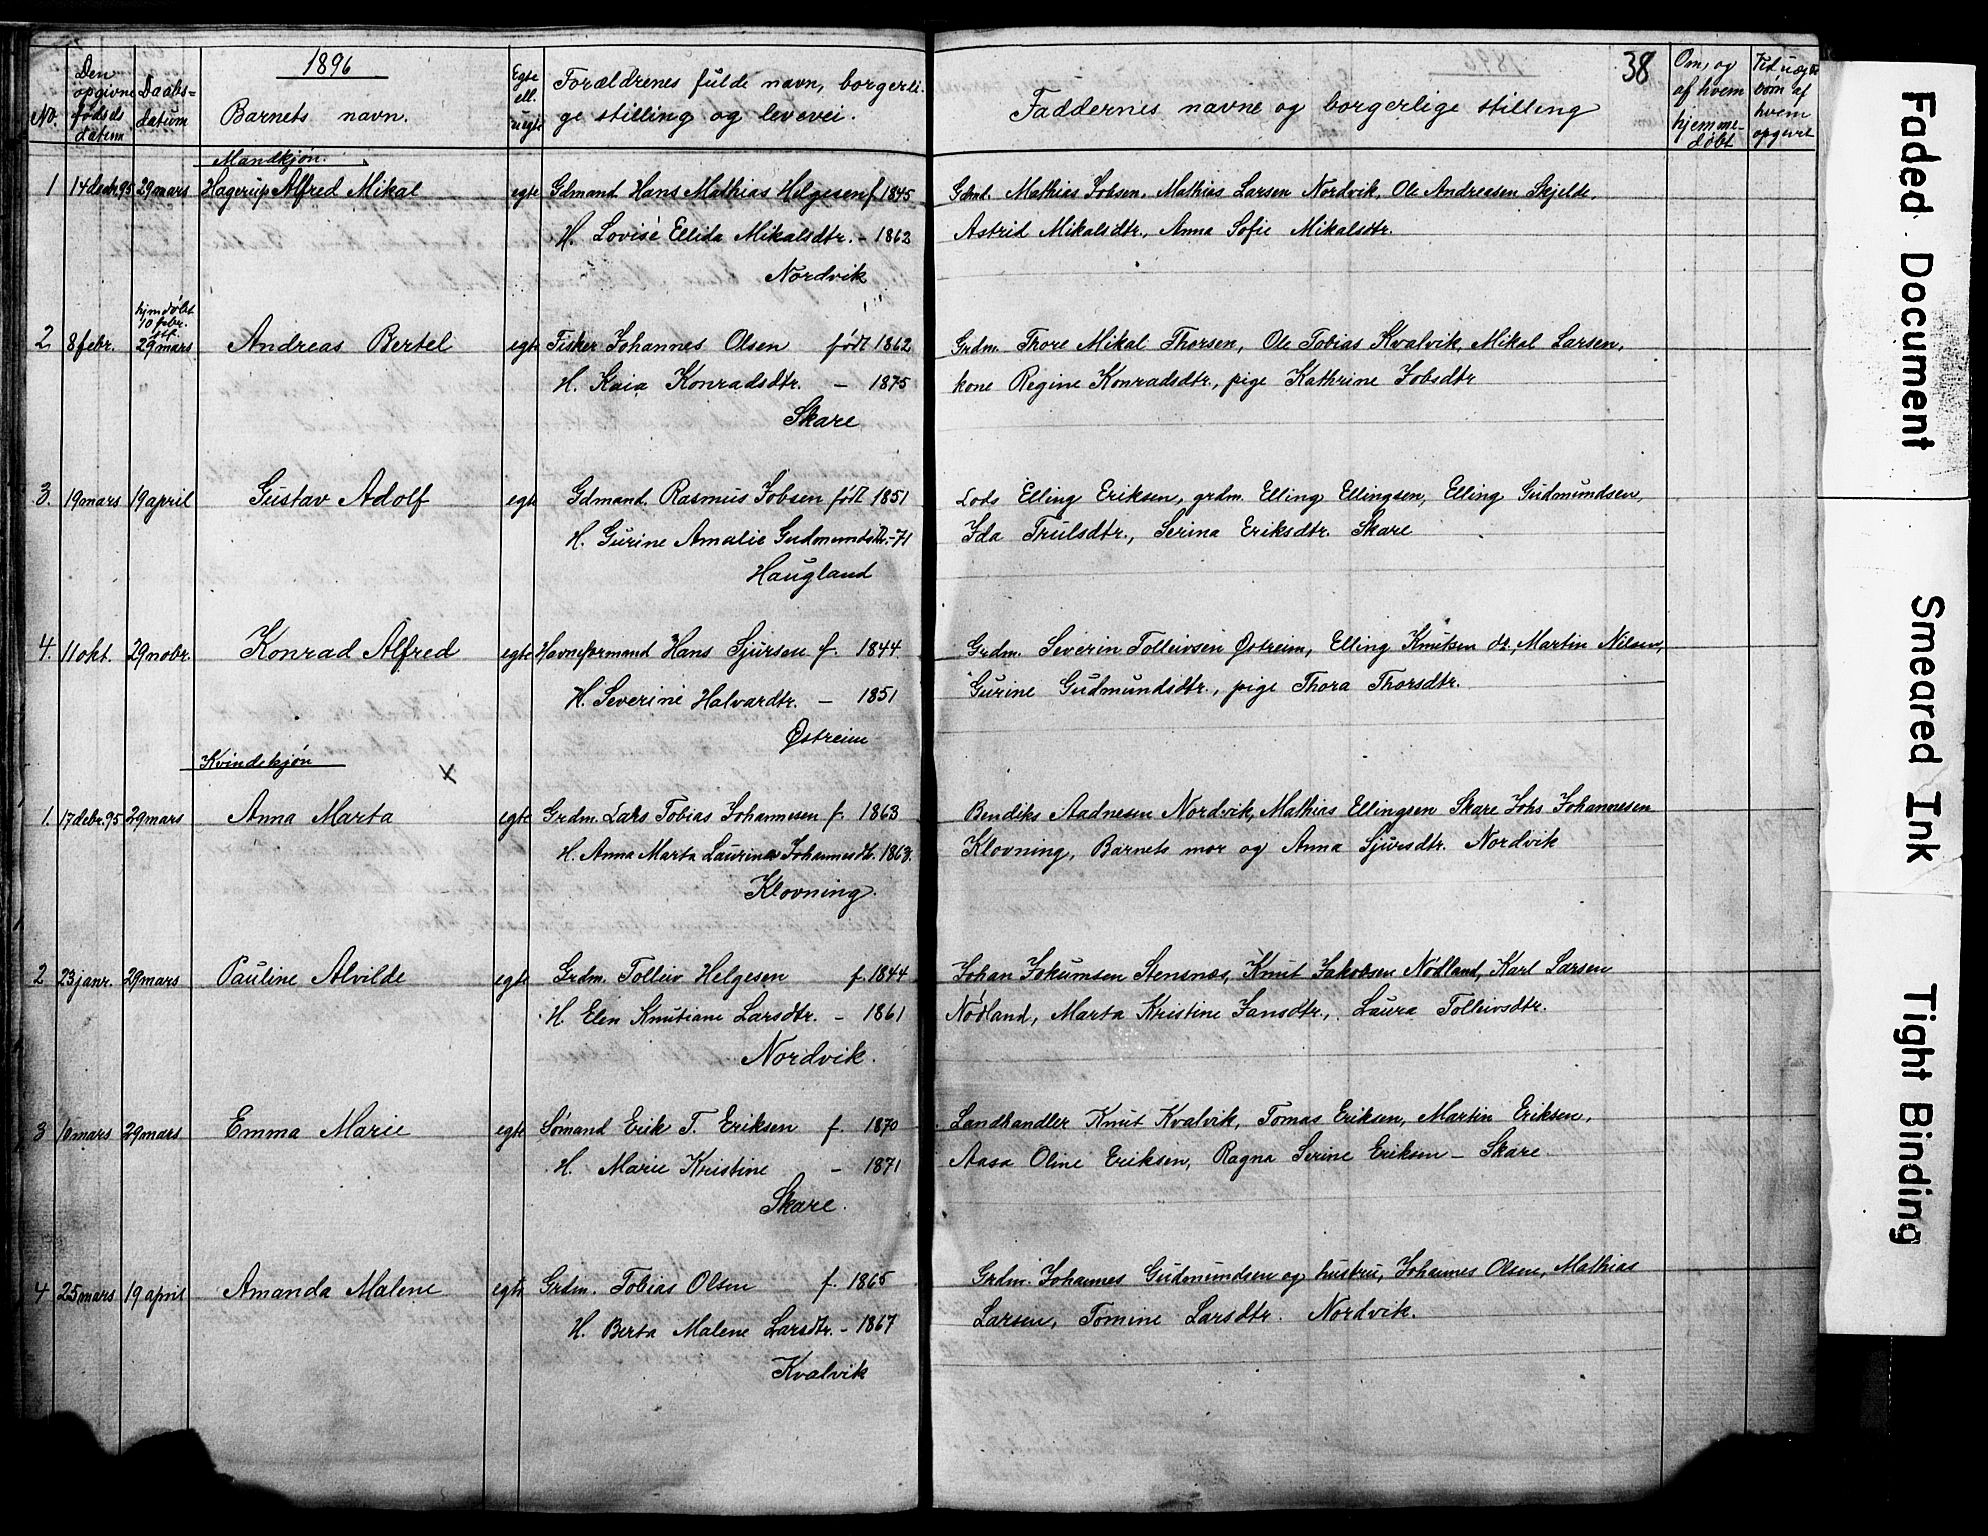 1896
38
No.
Den opgivne fødsels datum
Daabs-datum
Barnets navn.
Egte ell. uegte
Forældrenes fulde navn, borgerli-
ge stilling og levevei.
Faddernes navne og borgerlige stilling
Om, og af hvem hjemme-døbt
børn af hvem opgivet
Mandkjøn.
1 14 decbr 95 29 mars Hagerup Alfred Mikal egte Gdmand Hans Mathias Helgesen f. 1845 Gdmd. Mathias Jobsen, Mathias Larsen Nordvik, Ole Andreasen Skjelde,
H. Lovise Ellida Mikalsdtr. - 1862 Astrid Mikalsdtr., Anna Sofie Mikalsdtr.
Nordvik
hjemdøbt
10 febr.
stf.
2 8 febr. 29 mars Andreas Bertel egte Fisker Johannes Olsen født 1862 Grdm. Thore Mikal Thorsen, Ole Tobias Kvalvik, Mikal Larsen,
H. Kaia Konradsdtr. - 1875 kone Regine Konradsdtr., pige Kathrine Jobsdtr
Skare
3. 19 mars 19 april Gustav Adolf egte Gdmand. Rasmus Jobsen født 1851 Lods Elling Eriksen, grdm. Elling Ellingsen, Elling Gudmundsen,
H. Gurine Amalie Gudmundsdtr. - 71 Ida Trulsdtr., Serina Eriksdtr. Skare
Haugland
4. 11 okt. 29 nobr. Konrad Alfred egte Havneformand Hans Sjursen f. 1844 Grdm. Severin Tolleivsen Østreim, Elling Knutsen Martin Nilsen,
H. Severine Halvardtr. - 1851 Gurine Gudmundsdtr., pige Thora Thorsdtr.
Østreim
Kvindekjøn
X
1. 17 debr. 95 29 mars Anna Marta egte Grdm. Lars Tobias Johannesen f. 1863 Bendiks Aadnesen Nordvik, Mathias Ellingsen Skare Johs Johannesen
H. Anna Marta Laurina Johannesdtr. 1863. Klovning, Barnets mor og Anna Sjursdtr. Nordvik
Klovning.
2 23 janr. 29 mars Pauline Alvilde egte Grdm. Tolleiv Helgesen f. 1844 Johan Jokumsen Stensnæs, Knut Jakobsen Nødland, Karl Larsen
H. Elen Knutiane Larsdtr. - 1861 Nødland, Marta Kristine Jansdtr., Laura Tolleivsdtr.
Nordvik.
3 10 mars 29 mars Emma Marie egte Sømand Erik T. Eriksen f. 1870 Landhandler Knut Kvalvik, Tomas Eriksen, Martin Eriksen,
H. Marie Kristine - 1871 Aasa Oline Eriksen, Ragna Serine Eriksen - Skare
Skare.
4 25 mars 19 april Amanda Malene egte Grdm. Tobias Olsen f. 1865 Grdm. Johannes Gudmundsen og hustru, Johannes Olsen, Mathias
H. Berta Malene Larsdtr. - 1867 Larsen, Tomine Larsdtr. Nordvik.
Kvalvik
Faded Document
Smeared Ink
Tight Binding